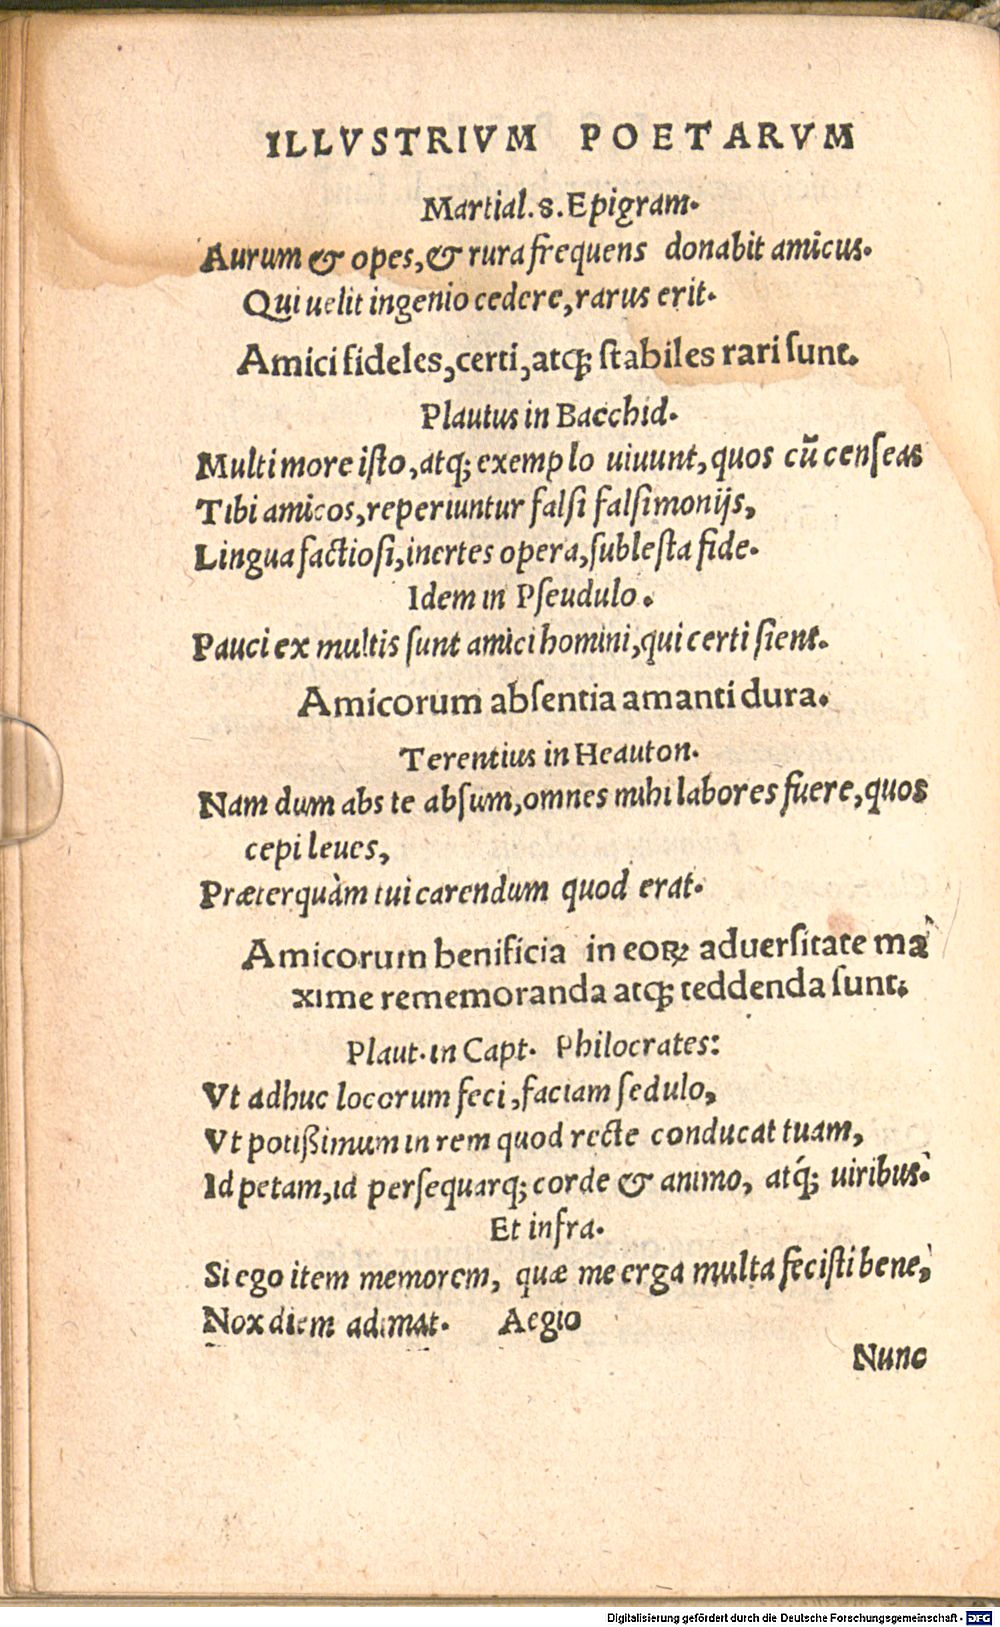 ILLVSTRIVM POETARVM
Martial. 8. Epigram.
Aurum & opes, & rura frequens donabit amicus.
Qui uelit ingenio cedere, rarus erit.
Amici fideles, certi, atqꝫ ſtabiles rari ſunt.
Plautus in Bacchid.
Multi more iſto, atq; exemplo uiuunt, quos cū cenſeas
Tibi amicos, reperiuntur falſi falſimonijs,
Lingua factioſi, inertes opera, ſubleſta fide.
Idem in Pſeudulo.
Pauci ex multis ſunt amici homini, qui certi ſient.
Amicorum abſentia amanti dura.
Terentius in Heauton.
Nam dum abs te abſum, omnes mihi labores fuere, quos
cepi leues,
Præterquàm tui carendum quod erat.
Amicorum benificia in eoꝝ aduerſitate ma
xime rememoranda atqꝫ teddenda ſunt.
Plaut. in Capt. Philocrates:
Vt adhuc locorum feci, faciam ſedulo,
Vt potißimum in rem quod recte conducat tuam,
Id petam, id perſequarq; corde & animo, atq́; uiribus.
Et infra.
Si ego item memorem, quæ me erga multa feciſti bene,
Nox diem adimat. Aegio
Nunc
Digitalisierung gefördert durch die Deutsche Forschungsgemeinschaft - DFG